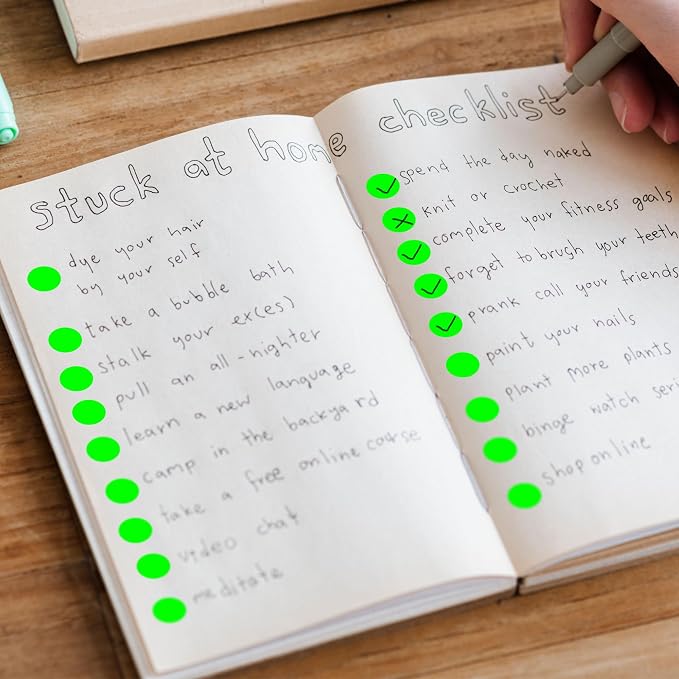 stuck at home checklist
dye your hair
by your self
take a bubble bath
stalk your ex(es)
pull an all-nighter
learn a new language
camp in the backyard
take a free online course
video chat
meditate
spend the day naked
knit or crochet
complete your fitness goals
forget to brush your teeth
prank call your friends
paint your nails
plant more plants
binge watch seri
shop online